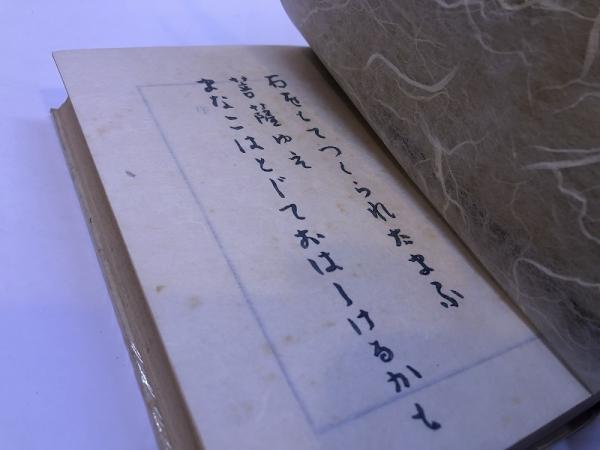 石をもてつくられたまふ
菩薩ゆゑ
まなこはとじておはしけるかも